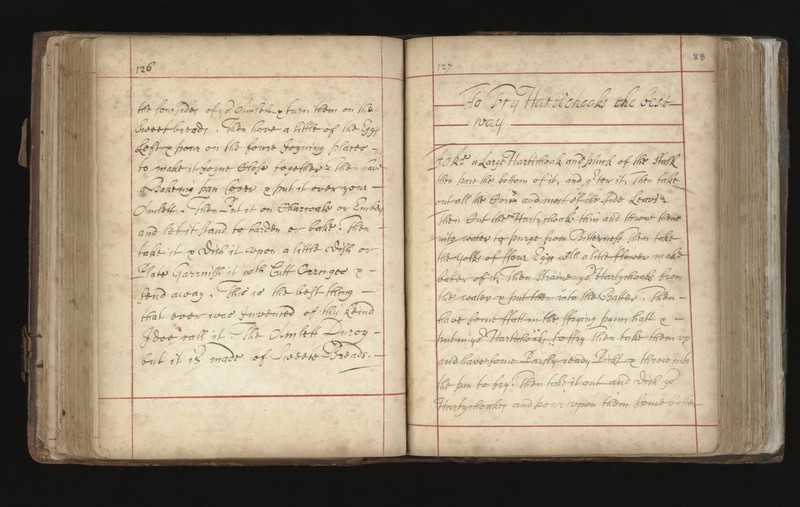 126
the four sides of yᵉ Omlett & turn them on the
Sweet breads. Then have a little of the Eggs
Left & pour on the foure Joyning places
to make it Joyne Close together: Then have
a Bakeing pan Cover & put it over your
Omlett. Then Put it on Charcoale or Embers
and let it stand to harden or bake: Then
take it & Dish it upon a little Dish or
Plate Garnish it with Cutt Orringes &
send away. This is the best thing
that ever was Invented of this Keind
I doe call it. The Omlett
but it is made of Sweete Breads.
127
88
To Fry Hartichoaks the best
way
Take a Large Hartichoak and pluck of the Stalk
then pare the bottom of it, and qʳter it. Then take
out all the Core and most of the side Leaves
Then Cut the Hartychoak thin and throw them
into water to purge from Bitterness Then take
the yolks of ffour Eggs with a little fflower make
batter of it, Then Straine yoʳ Hartychoaks from
the water & put them into the Batter. Then
have some ffatt in the ffrying pann hott &
putt in yoʳ Hartichoaks to ffry then take them up
and have some Parsly ready Pickt & throw into
the pan to fry. Then take it out and Dish yoʳ
Hartychoakes and pour upon them some butter